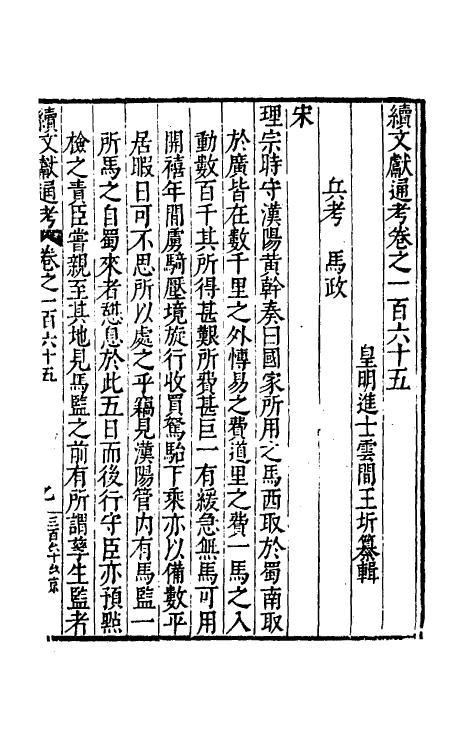 續文獻通考卷之一百六十五
皇明進士雲間王圻纂輯
兵考　馬政
宋
理宗時守漢陽黃幹奏曰國家所用之馬西取於蜀南取
於廣皆在數千里之外博易之費道里之費一馬之入
動數百千其所得甚艱所費甚巨一有緩急無馬可用
開禧年間虜騎壓境旋行收買駑駘下乘亦以備數平
居暇日可不思所以處之乎竊見漢陽管內有馬監一
所馬之自蜀來者憇息於此五日而後行守臣亦預㸃
檢之責臣嘗親至其地見馬監之前有所謂孳生監者
續文獻通考　卷之一百六十五